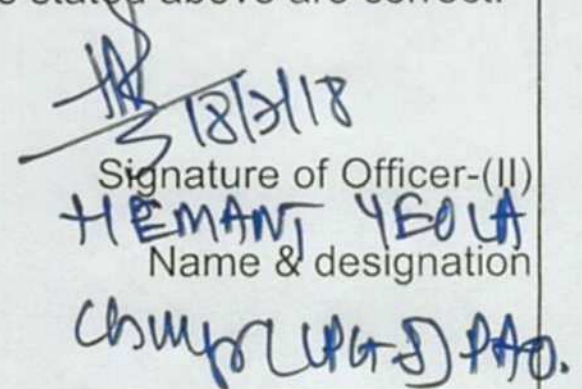 stated above are correct.
18/7/18
Signature of Officer-(II)
HEMANT YEOLA
Name & designation